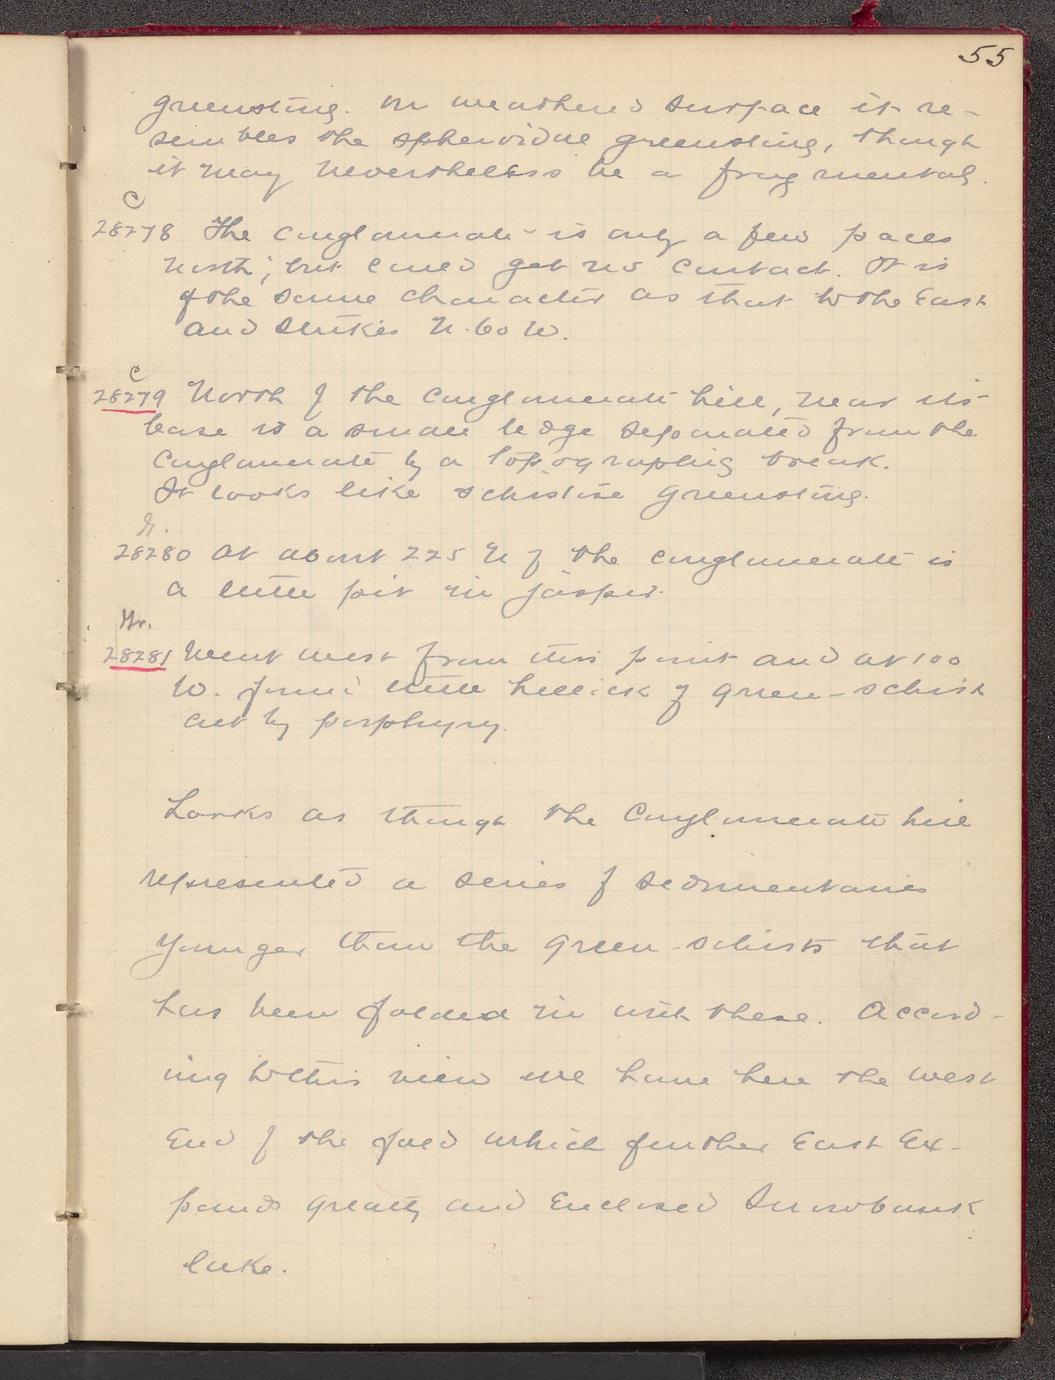 55
greenstone. On weathered surface it re-
sembles the spheroidal greenstone, though
it may nevertheless be a fragmental.
C
28278 The conglomerate is only a few paces
North, but could get no contact. It is
of the same character as that to the East
and strikes N. 60 W.
C
28279 North of the conglomerate hill, near its
base is a small ledge separated from the
conglomerate by a topographic break.
It looks like schistose greenstone.
28280 At about 225 N of the conglomerate is
a little pit in jasper.
28281 Went west from this point and at 100
W. found little hillock of green-schist
cut by porphyry.
Looks as though the conglomerate hill
represented a series of sedimentaries
younger than the green-schists that
has been folded in with these. Accord-
ing to this view we have here the west
End of the fold which further East Ex-
pands greatly and Enclosed Snowbank
lake.